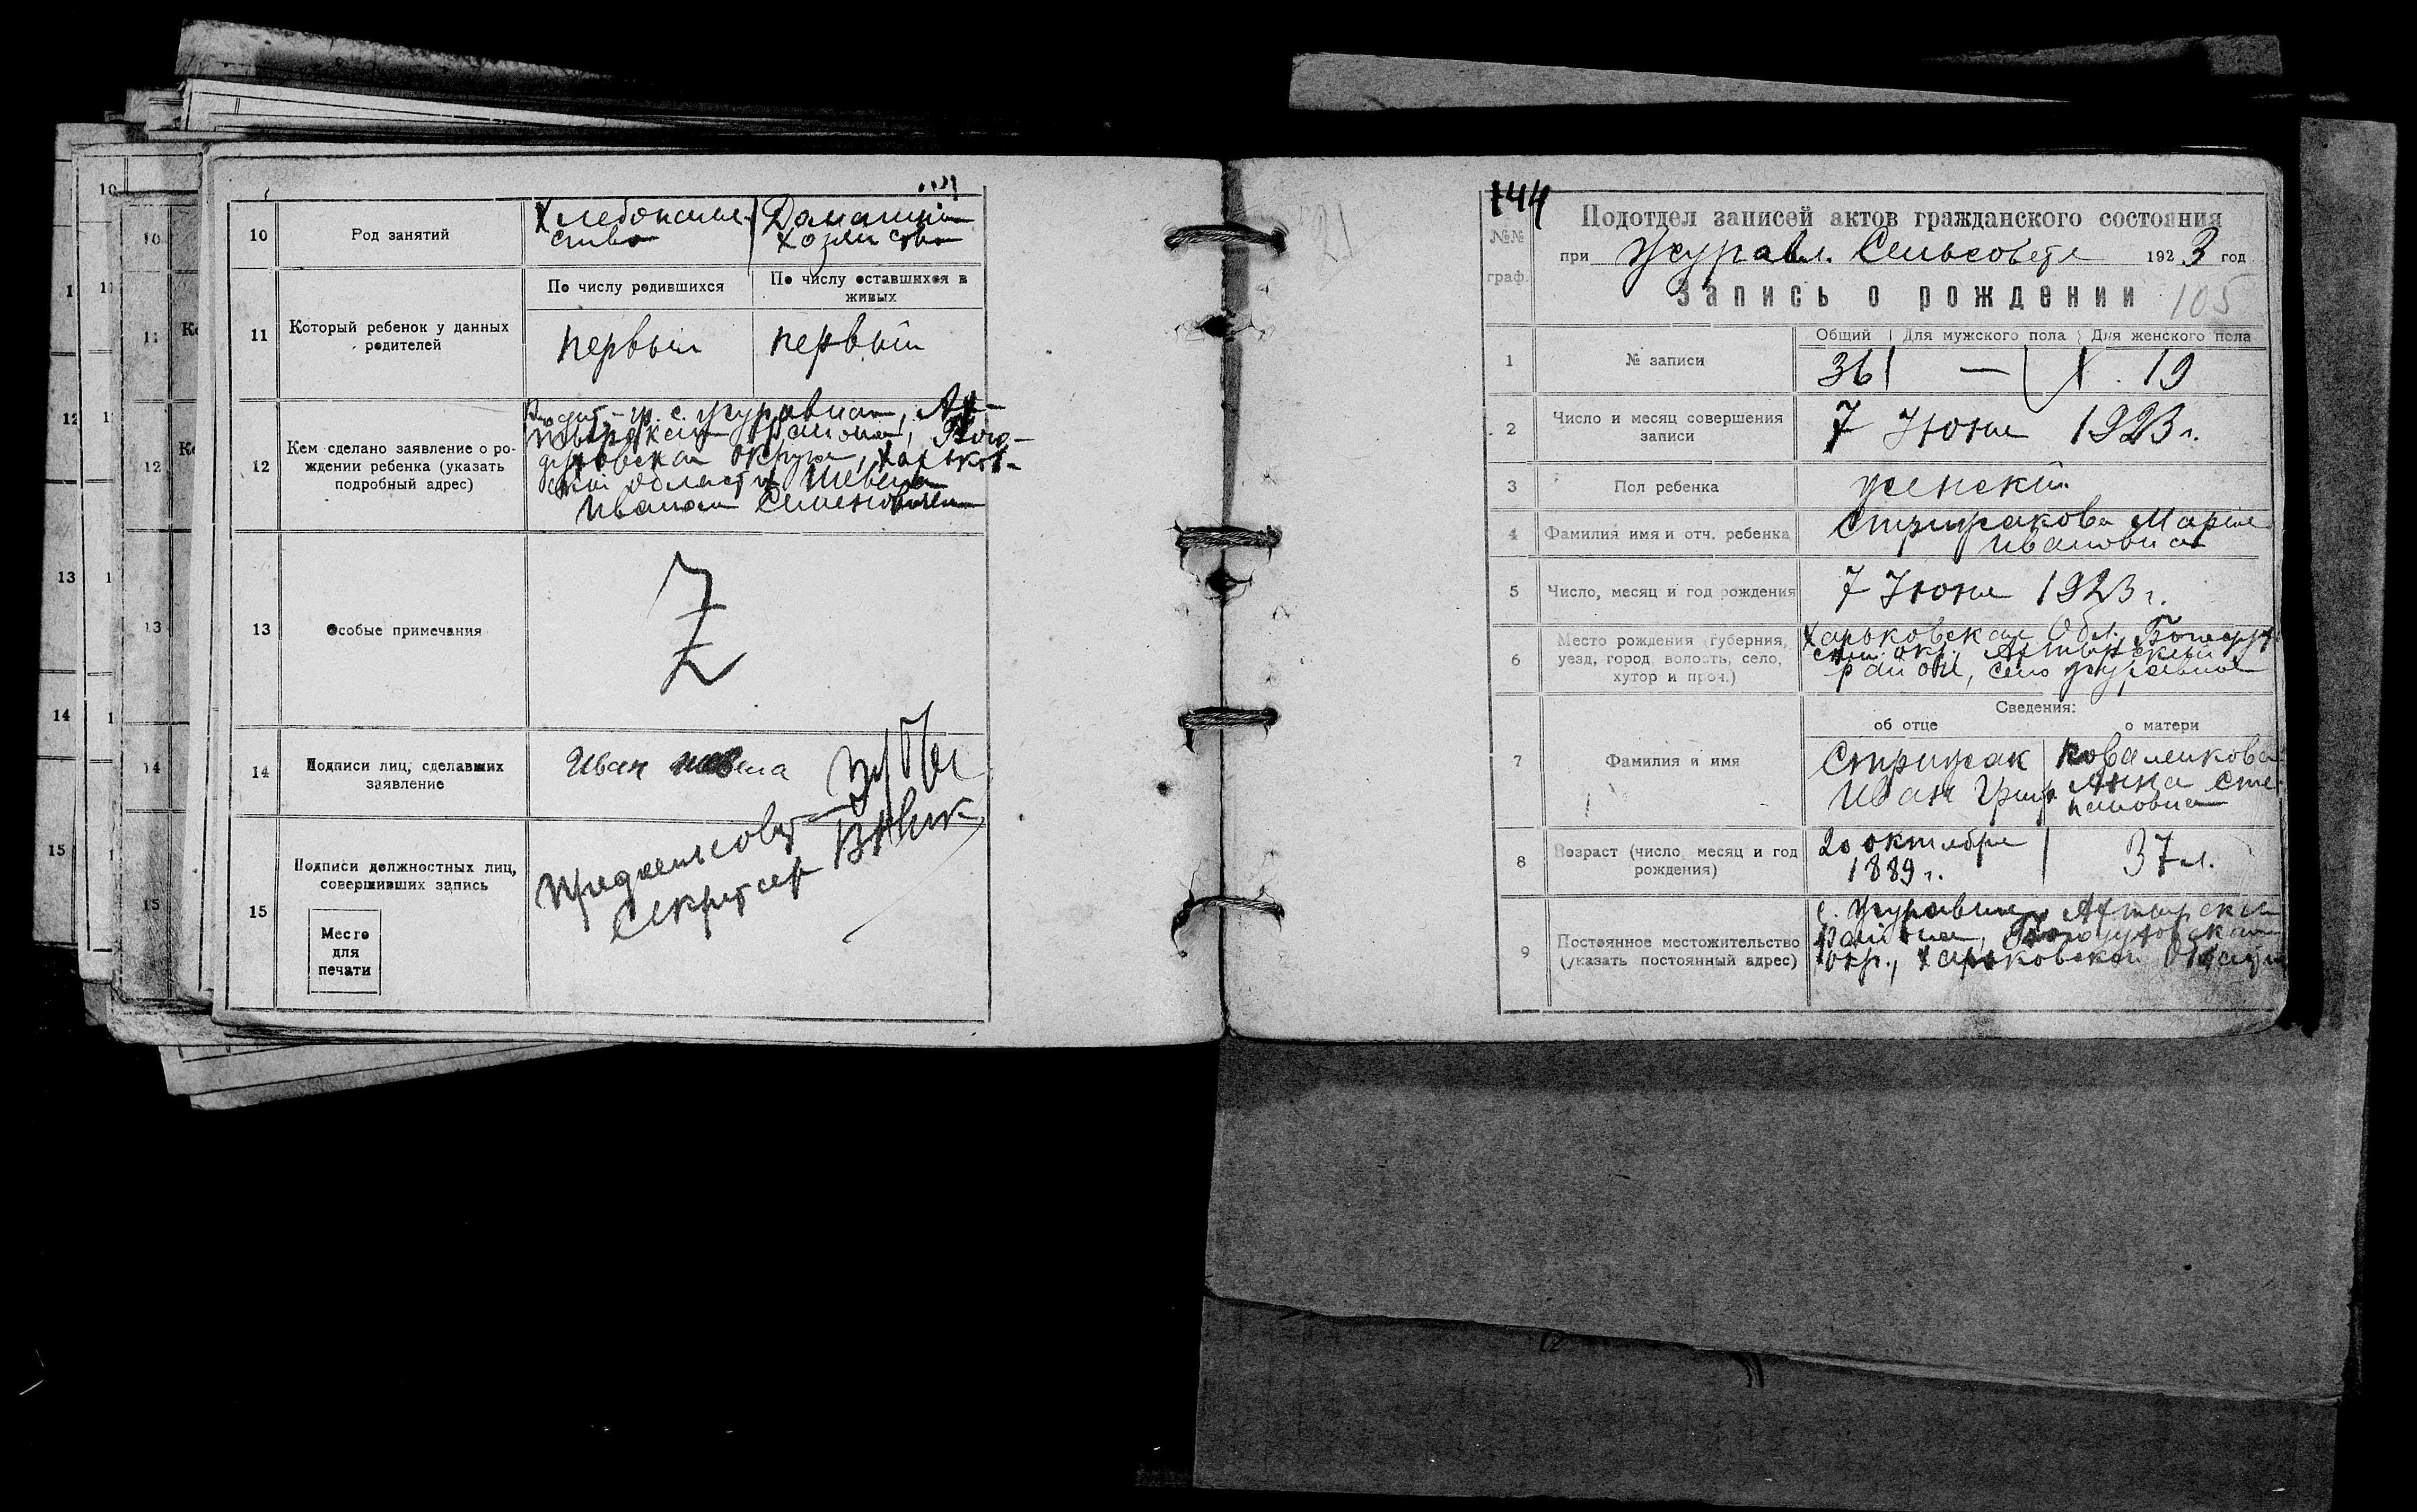 10
Род занятий
Хлебопаше-
ство
Домашнее
хозяйство
11
Который ребенок у данных
родителей
По числу родившихся
По числу оставшихся в
живых
первый
первый
12
Кем сделано заявление о ро-
ждении ребенка (указать
подробный адрес)
гр. с. Журавная, Ах-
тырского района, Бого-
духовского округа, Харьков-
ской области
Иваном Семеновичем
13
Особые примечания
Z
14
Подписи лиц, сделавших
заявление
Иван
15
Подписи должностных лиц,
совершивших запись
Место
для
печати
Предсельсовета
Секретарь
144
21
№№
граф.
Подотдел записей актов гражданского состояния
при Журавл. Сельсовете 1923 год
Запись о рождении
105
1
№ записи
Общий
Для мужского пола
Для женского пола
36
—
19
2
Число и месяц совершения
записи
7 Июня 1923 г.
3
Пол ребенка
женский
4
Фамилия имя и отч. ребенка
Стрижакова Мария
Ивановна
5
Число, месяц и год рождения
7 Июня 1923 г.
6
Место рождения (губерния,
уезд, город, волость, село,
хутор и проч.)
Харьковская Обл. Богодух
окр. Ахтырский
район, село Журавное
7
Фамилия и имя
Сведения:
об отце
о матери
Стрижак
Иван Григ
Коваленкова
Анна Сте-
пановна
8
Возраст (число, месяц и год
рождения)
20 октября
1889 г.
37 л.
9
Постоянное местожительство
(указать постоянный адрес)
с. Журавное Ахтырский
района, Богодуховский
окр., Харьковской Области